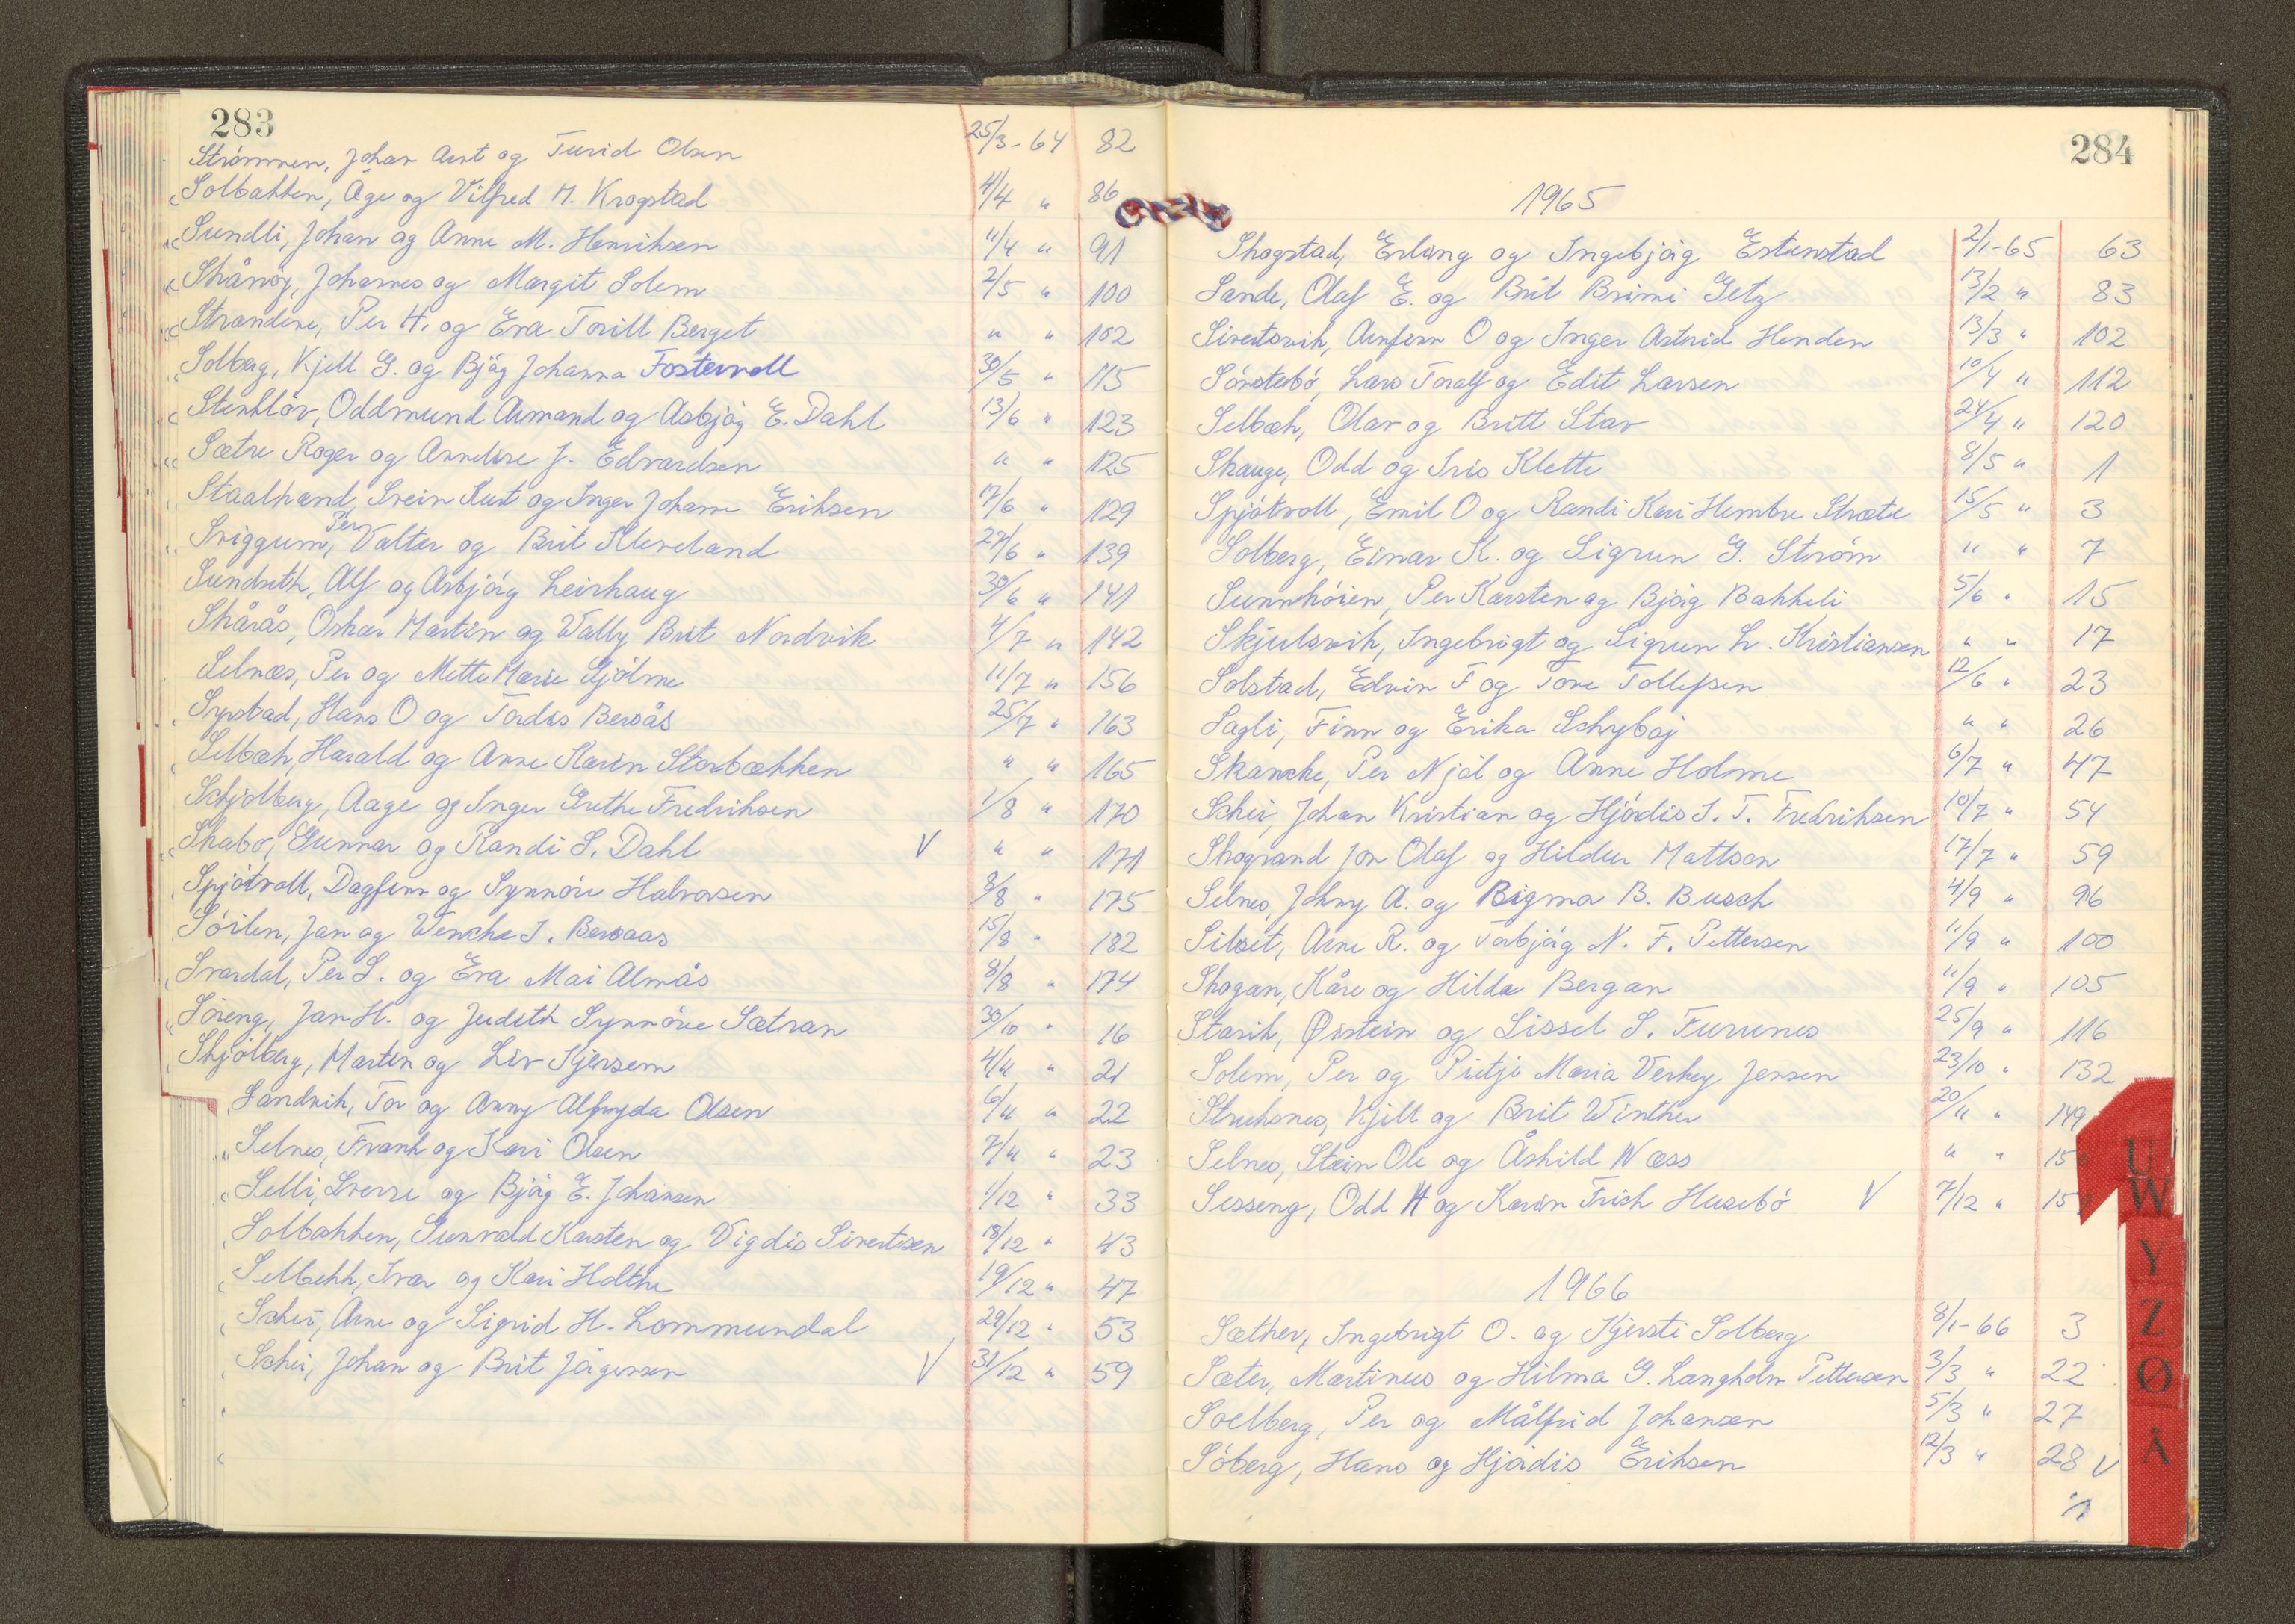 283
Strømmen, Johan Arnt og Turid Olsen 25/3-64 82
Solbakken, Åge og Vilfred M. Krogstad 4/4 " 86
Sundli, Johan og Anne M. Henriksen 11/4 " 91
Skånøy, Johannes og Margit Solem 2/5 " 100
Strandene, Per H. og Eva Torill Berget " " 102
Solberg, Kjell G. og Bjørg Johanna Fostervoll 30/5 " 115
Stenkløv, Oddmund Armand og Asbjørg E. Dahl 13/6 " 123
Sætre Roger og Annelise J. Edvardsen " " 125
Staalhand, Svein Kurt og Inger Johanne Eriksen 17/6 " 129
Sviggum, Per Valter og Brit Kleveland 27/6 " 139
Sundseth, Alf og Asbjørg Leirhaug 30/6 " 141
Skårås, Oskar Martin og Wally Brit Nordvik 4/7 " 142
Selnæs, Per og Mette Marie Gjølme 11/7 " 156
Syrstad, Hans O og Tordis Bersås 25/7 " 163
Selbæk, Harald og Anne Karin Storbækken " " 165
Schjølberg, Aage og Inger Grethe Fredriksen 1/8 " 170
Skabo, Gunnar og Randi S. Dahl V " " 171
Spjøtvoll, Dagfinn og Synnøve Halvorsen 8/8 " 175
Søilen, Jan og Wenche I. Bersaas 15/8 " 182
Svardal, Per S. og Eva Mai Almås 8/8 " 174
Søreng, Jan H. og Judith Synnøve Sætran 30/10 " 16
Skjølberg, Martin og Liv Kjersem 4/11 " 21
Sandvik, Tor og Anny Alfryda Olsen 6/11 " 22
Selnes, Frank og Kari Olsen 7/11 " 23
Selli, Sverre og Bjørg E. Johansen 1/12 " 33
Solbakken, Gunvald Karsten og Vigdis Sivertsen 18/12 " 43
Selbekk, Ivar og Kari Holthe 19/12 " 47
Schei, Arne og Sigrid H. Lommundal 29/12 " 53
Schei, Johan og Brit Jørgensen V 31/12 " 59
284
1965
Skogstad, Erling og Ingebjørg Estenstad 2/1-65 63
Sande, Olaf E. og Brit Brimi Getz 13/2 " 83
Sivertsvik, Arnfinn O og Inger Astrid Henden 13/3 " 102
Sørstebø, Lars Toralf og Edit Larsen 10/4 " 112
Selbæk, Olav og Britt Stav 24/4 " 120
Skauge, Odd og Iris Klette 8/5 " 1
Spjøtvoll, Emil O og Randi Kari Hembre Stræte 15/5 " 3
Solberg, Einar K. og Sigrun G. Strøm " " 7
Sunnhøien, Per Karsten og Bjørg Bakkeli 5/6 " 15
Skjulsvik, Ingebrigt og Sigrun L. Kristiansen " " 17
Solstad, Edvin F og Tove Tollefsen 12/6 " 23
Sagli, Finn og Erika Schybaj " " 26
Skancke, Per Njål og Anne Holme 6/7 " 47
Schei, Johan Kristian og Hjørdis S. T. Fredriksen 10/7 " 54
Skogrand Jon Olaf og Hildur Mattson 17/7 " 59
Selnes, Johny A. og Bigma B. Busch 4/9 " 96
Silset, Arne R. og Torbjørg N. F. Pettersen 11/9 " 100
Skogan, Kåre og Hilda Bergan 11/9 " 105
Stavik, Øistein og Sissel S. Furunes 25/9 " 116
Solem, Per og Pietje Maria Verhey Jensen 23/10 " 132
Struksnes, Kjell og Brit Winther 20/11 " 149
Selnes, Stein Ole og Åshild Wæss " " 15
Sesseng, Odd H og Karin Frich Husebø V 7/12 " 15
1966
Sæther, Ingebrigt O. og Kjersti Solberg 8/1-66 3
Sæter, Martinus og Hilma G. Langholm Pettersen 3/3 " 22
Soelberg, Per og Målfrid Johansen 5/3 " 27
Søberg, Hans og Hjørdis Eriksen 12/3 " 28 V
U
W
Y
Z
Ø
Å